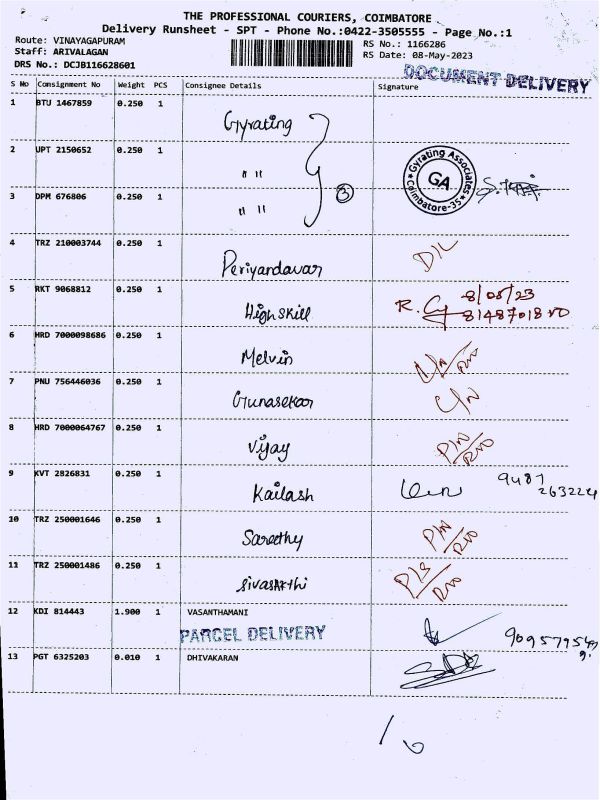 THE PROFESSIONAL COURIERS, COIMBATORE
Delivery Runsheet - SPT - Phone No.:0422-3505555 - Page No.:1
Route: VINAYAGAPURAM
Staff: ARIVALAGAN
DRS No.: DCJB116628601
RS No.: 1166286
RS Date: 08-May-2023
DOCUMENT DELIVERY
S No Consignment No Weight PCS Consignee Details Signature
1 BTU 1467859 0.250 1 Gyrating
2 UPT 2150652 0.250 1 " "
Gyrating Associates
GA
Coimbatore-35
3 DPM 676806 0.250 1 " " 3
4 TRZ 210003744 0.250 1 Periyandavar D/L
5 RKT 9068812 0.250 1 Highskill 8/05/23
6 HRD 7000098686 0.250 1 Melvin
7 PNU 756446036 0.250 1 Gunasekar
8 HRD 7000064767 0.250 1 Vijay P/N/RNO
9 KVT 2826831 0.250 1 Kailash 9487
10 TRZ 250001646 0.250 1 Sareethy P/N/RNO
11 TRZ 250001486 0.250 1 Sivasakthi P/S/RNO
12 KDI 814443 1.900 1 VASANTHAMANI
PARCEL DELIVERY
13 PGT 6325203 0.010 1 DHIVAKARAN